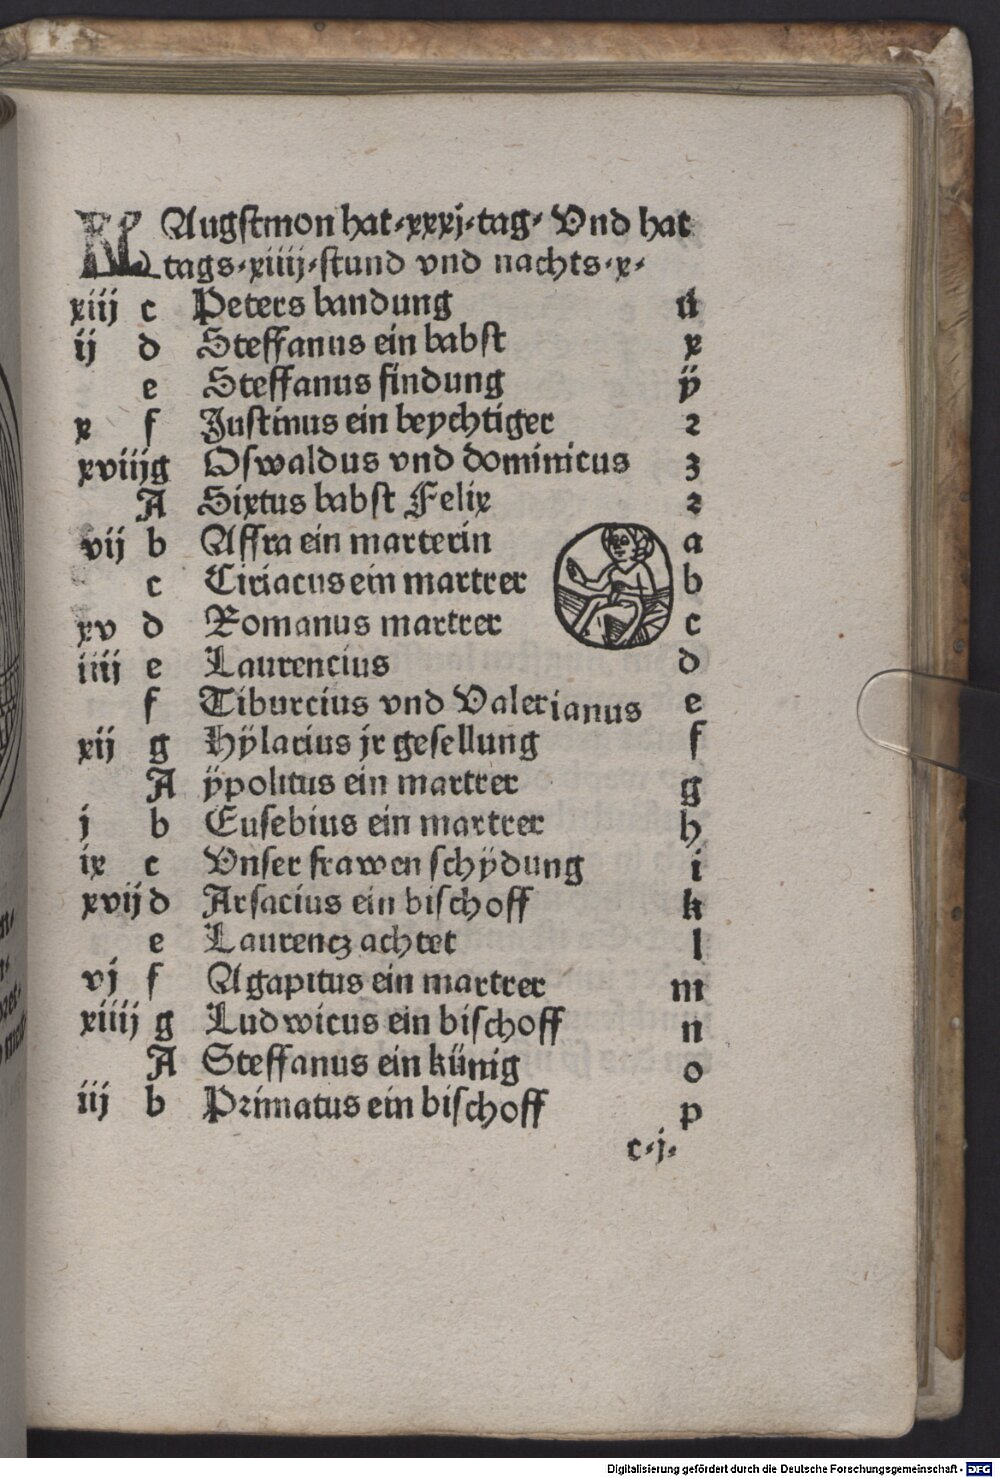 KL Augstmon hat·xxxj·tag· Vnd hat
tags·xiiij·stund vnd nachts·x·
xiij c Peters bandung ú
ij d Steffanus ein babst x
e Steffanus findung ÿ
x f Justinus ein beychtiger z
xviij g Oswaldus vnd dominicus ʒ
A Sixtus babst Felix 2
vij b Affra ein marterin a
c Ciriacus ein martrer b
xv d Romanus martrer c
iiij e Laurencius d
f Tiburcius vnd Valerianus e
xij g Hÿlarius jr gesellung f
A ÿpolitus ein martrer g
j b Eusebius ein martrer h
ix c Vnser frawen schÿdung i
xvij d Arsacius ein bischoff k
e Laurencz achtet l
vj f Agapitus ein martrer m
xiiij g Ludwicus ein bischoff n
A Steffanus ein künig o
iij b Primatus ein bischoff p
c·j·
Digitalisierung gefördert durch die Deutsche Forschungsgemeinschaft - DFG